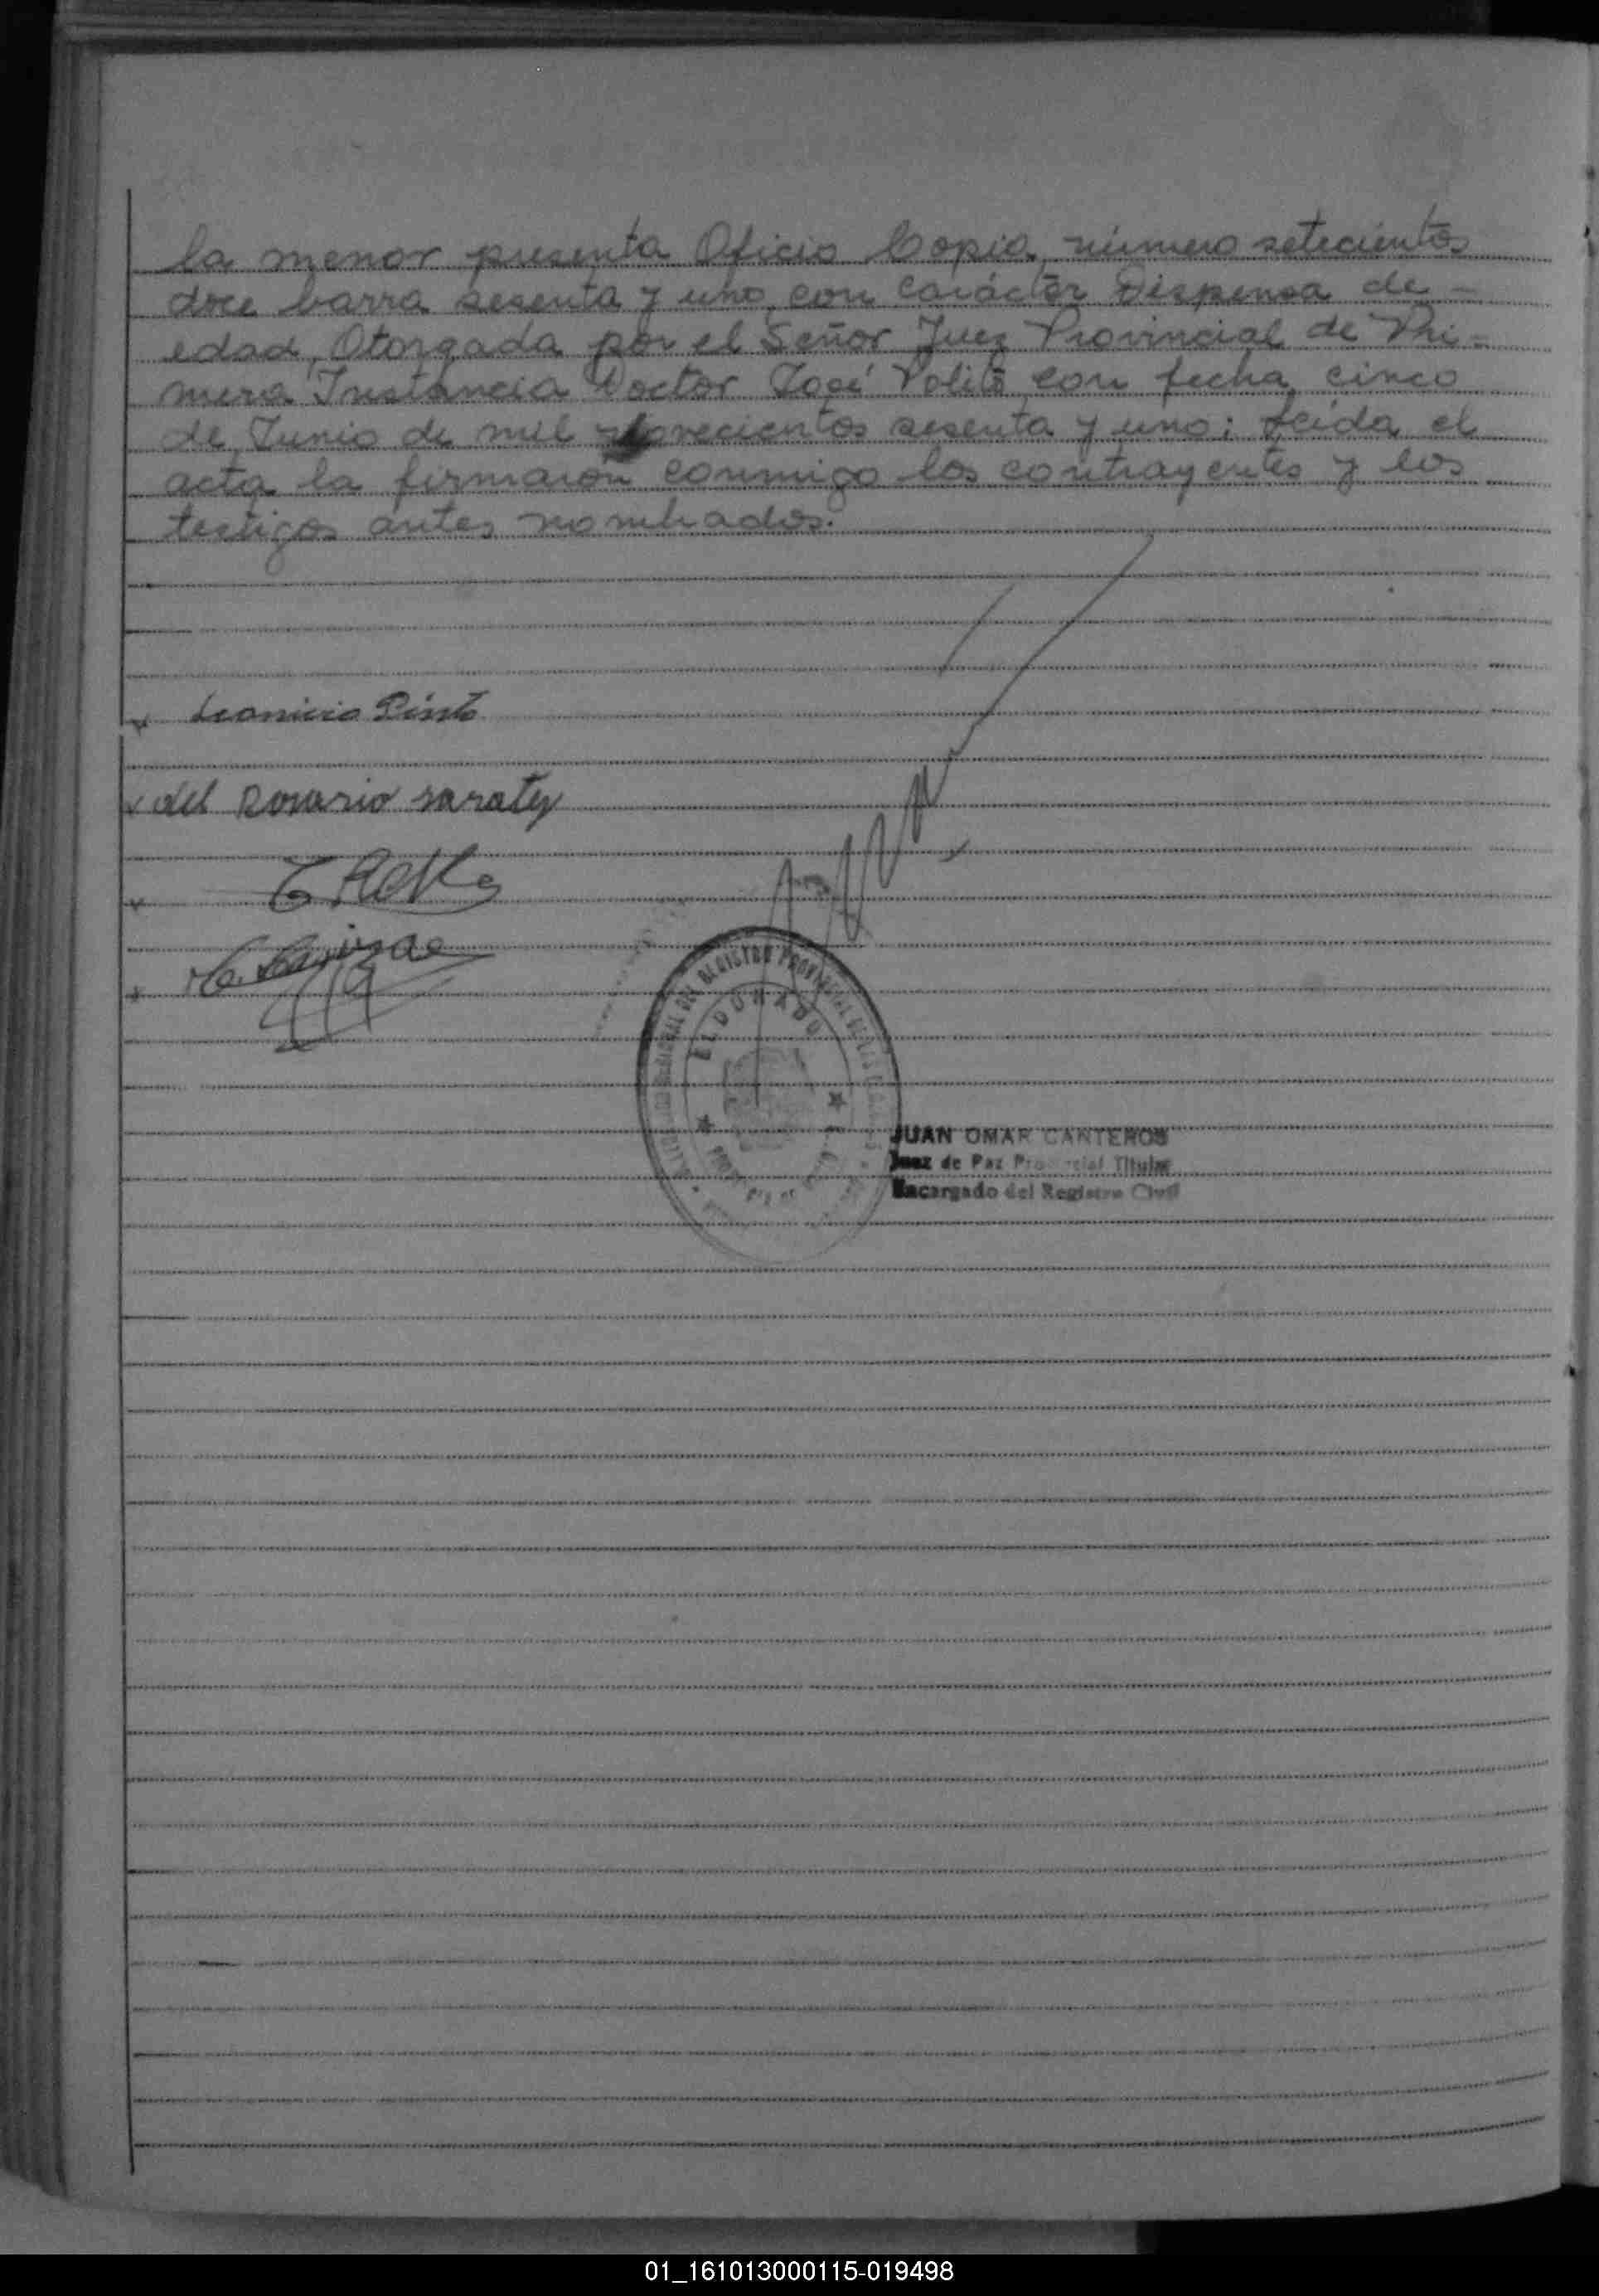 la menor presenta Oficio Copia, número setecientos
doce barra sesenta y uno, con carácter Dispensa de -
edad, Otorgada por el Señor Juez Provincial de Pri=
mera Instancia Doctor José Polito, con fecha, cinco
de Junio de mil novecientos sesenta y uno; leída el
acta la firmaron conmigo los contrayentes y los
testigos antes nombrados.
Leonicio Pinto
del Rosario saratey
REGISTRO PROVINCIAL DE LAS
ELDORADO
JUAN OMAR CANTEROS
Juez de Paz Provincial Titular
Encargado del Registro Civil
01_161013000115-019498